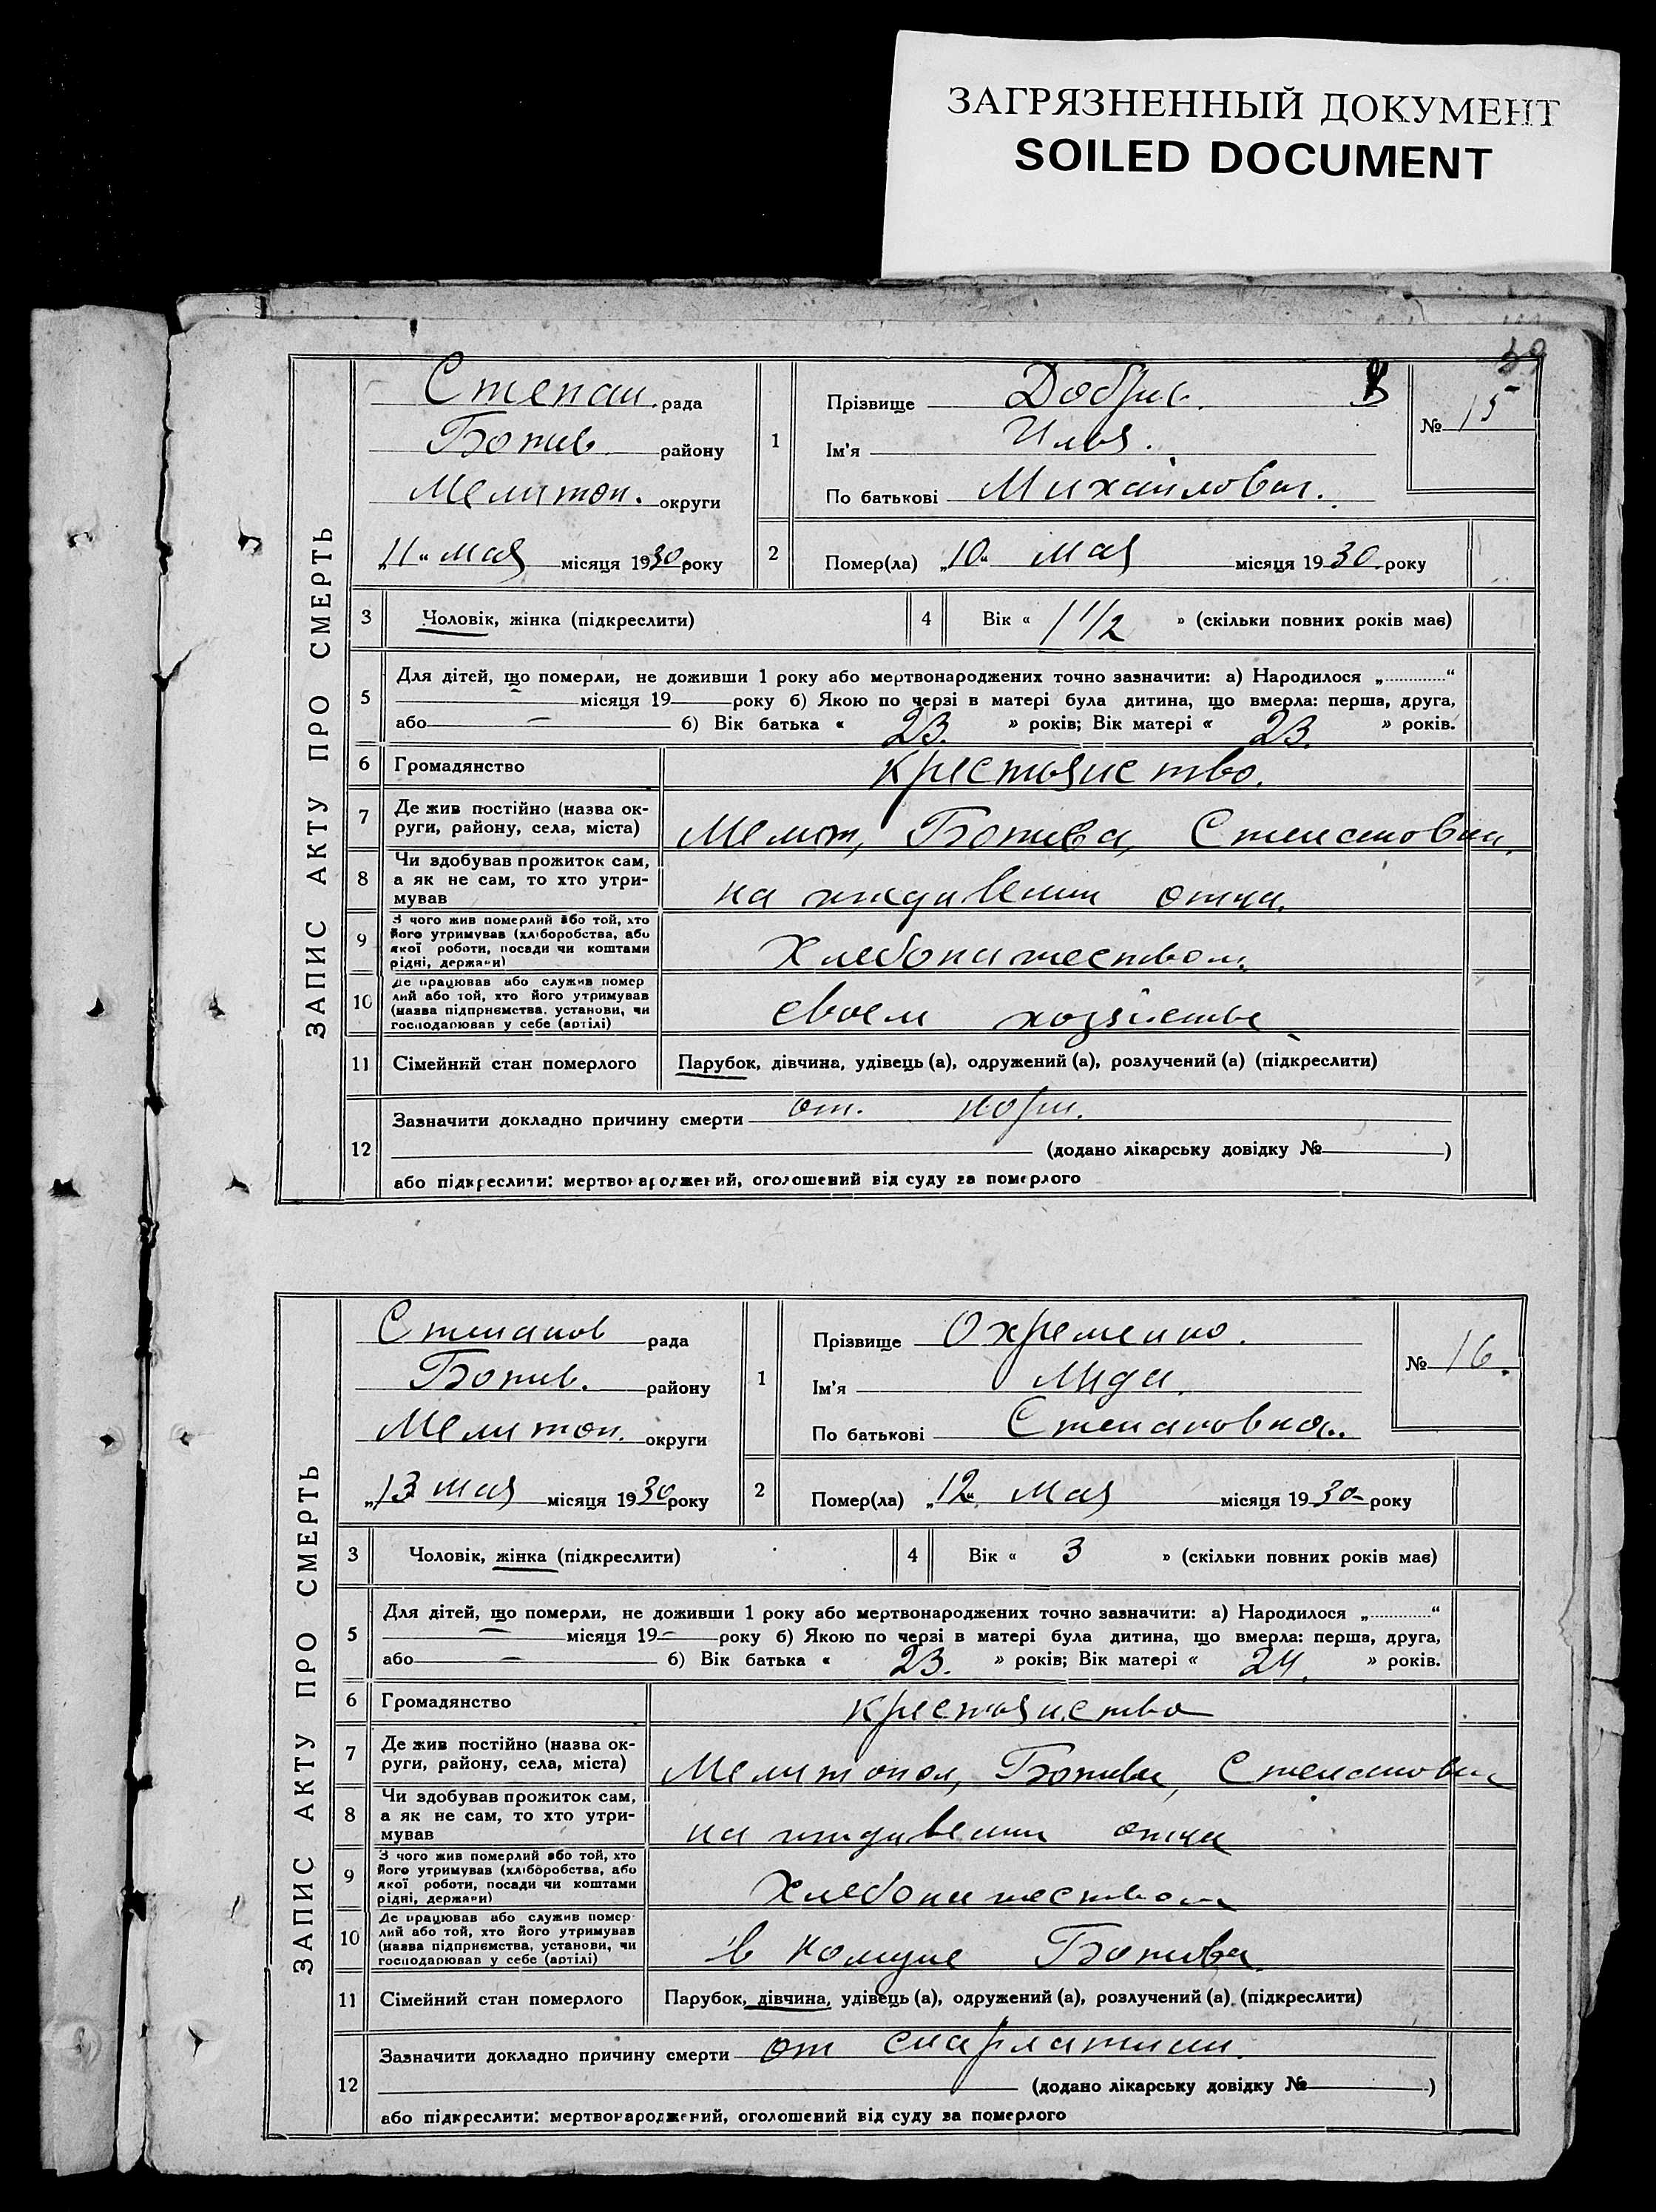 ЗАГРЯЗНЕННЫЙ ДОКУМЕНТ
SOILED DOCUMENT
39
ЗАПИС АКТУ ПРО СМЕРТЬ
Степан. рада
Ботив района
Мелитоп. округи
„11“ мая місяця 1930 року
1
Прізвище Добрив.
Ім'я Илья.
По батькові Михайлович.
№ 15
2 Помер(ла) „10“ мая місяця 1930 року
3 Чоловік, жінка (підкреслити)
4 Вік « 1 1/2 » (скільки повних років має)
5 Для дітей, що померли, не доживши 1 року або мертвонароджених точно зазначити: а) Народилося „............“
— місяця 19 року б) Якою по черзі в матері була дитина, що вмерла: перша, друга,
або — б) Вік батька « 23. » років; Вік матері « 23. » років.
6 Громадянство крестьянство.
7 Де жив постійно (назва ок-
руги, району, села, міста) Мелит,
8 Чи здобував прожиток сам,
а як не сам, то хто утри-
мував на иждивении отца.
9 З чого жив померлий або той, хто
його утримував (хліборобства, або
якої роботи, посади чи коштами
рідні, держави) Хлебопашеством.
10 Де працював або служив помер
лий або той, хто його утримував
(назва підприємства, установи, чи
господарював у себе (артілі) своем хозяйстве
11 Сімейний стан померлого Парубок, дівчина, удівець (а), одружений (а), розлучений (а) (підкреслити)
12 Зазначити докладно причину смерти от.
(додано лікарську довідку № )
або підкреслити: мертвонароджений, оголошений від суду за померлого
ЗАПИС АКТУ ПРО СМЕРТЬ
Степанов рада
Ботив. району
Мелитоп. округи
„13 мая місяця 1930 року
1
Прізвище Охременко.
Ім'я Лида.
По батькові Степановна.
№ 16.
2 Помер(ла) „12“ мая місяця 1930 року
3 Чоловік, жінка (підкреслити)
4 Вік « 3 » (скільки повних років має)
5 Для дітей, що померли, не доживши 1 року або мертвонароджених точно зазначити: а) Народилося „............“
— місяця 19— року б) Якою по черзі в матері була дитина, що вмерла: перша, друга,
або — б) Вік батька « 23. » років; Вік матері « 24. » років.
6 Громадянство крестьянство
7 Де жив постійно (назва ок-
руги, району, села, міста) Мелитопол,
8 Чи здобував прожиток сам,
а як не сам, то хто утри-
мував на иждивении отца
9 З чого жив померлий або той, хто
його утримував (хліборобства, або
якої роботи, посади чи коштами
рідні, держави) Хлебопашеством
10 Де працював або служив помер
лий або той, хто його утримував
(назва підприємства, установи, чи
господарював у себе (артілі) в комуне
11 Сімейний стан померлого Парубок, дівчина, удівець (а), одружений (а), розлучений (а) (підкреслити)
12 Зазначити докладно причину смерти от скарлатини.
(додано лікарську довідку № )
або підкреслити: мертвонароджений, оголошений від суду за померлого